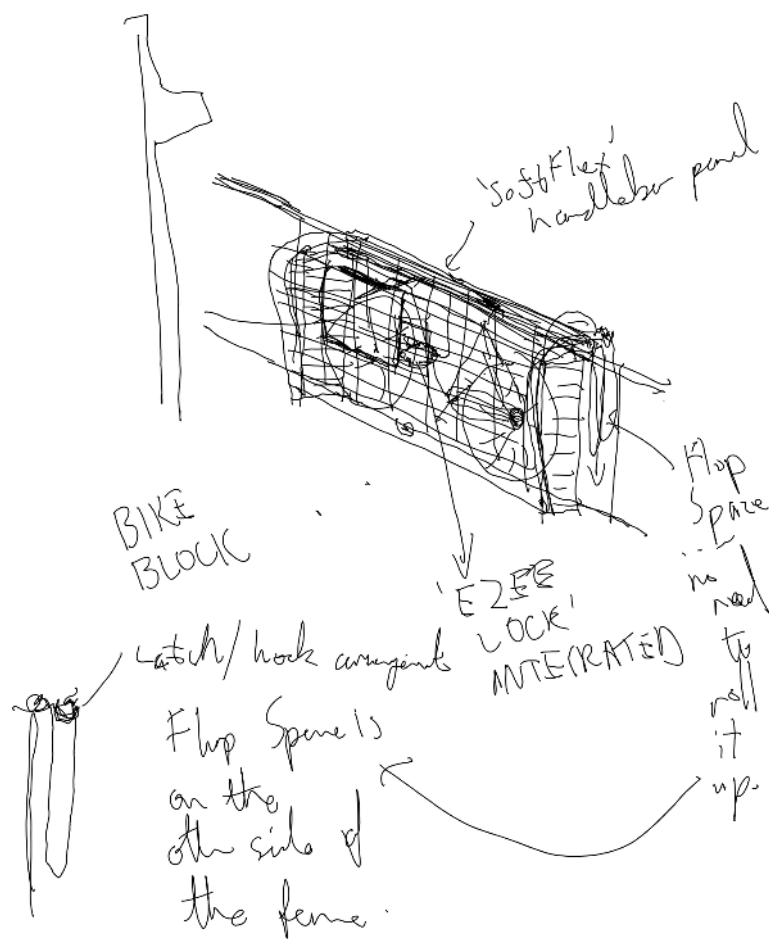 'SoftFlex'
handlebar panel
Flop
Space
no need
to
roll
it
up.
BIKE
BLOCK
'EZEE
LOCK'
INTEGRATED
Latch/hook
Flop Space is
on the
other side of
the fence.